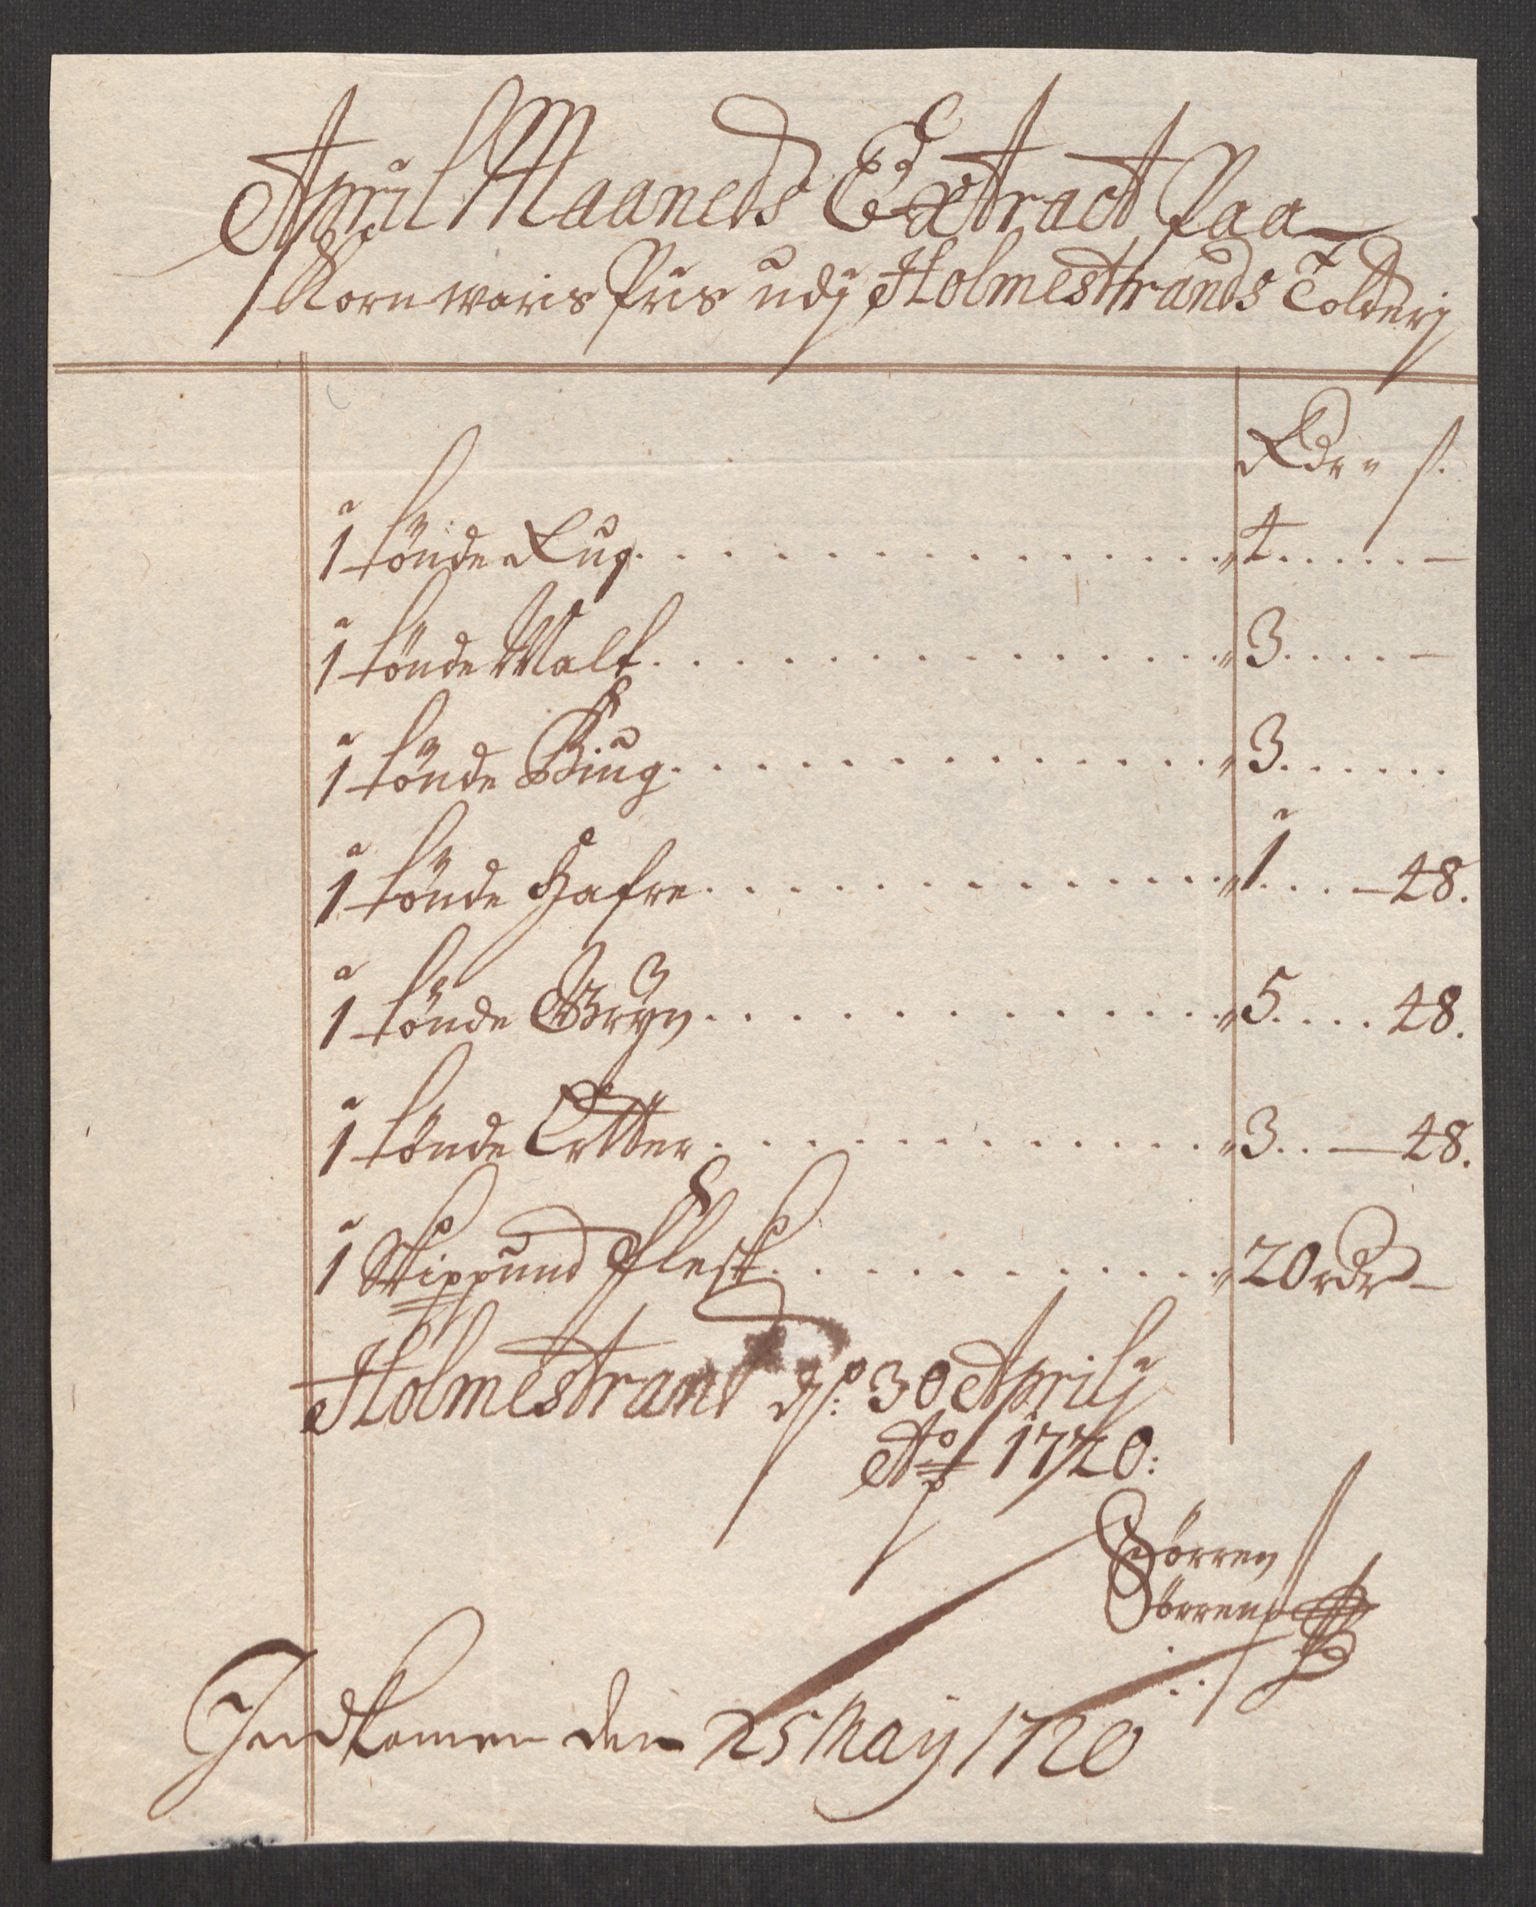 April Maaneds Extract Paa
Kornwaris Pris udj Holmestrands Tolderj
Rdr s.
1 tønde Rug 4
1 tønde Malt 3
1 tønde Biug 3
1 tønde Hafre 1 48.
1 tønde Gryn 5 48.
1 tønde Ertter 3 48.
1 Skippund Flesk 20 rdr
Holmestrand d: 30 Aprilj
Ao 1720:
Sørren
Sørrens
Indkomen den 25 Maij 1720